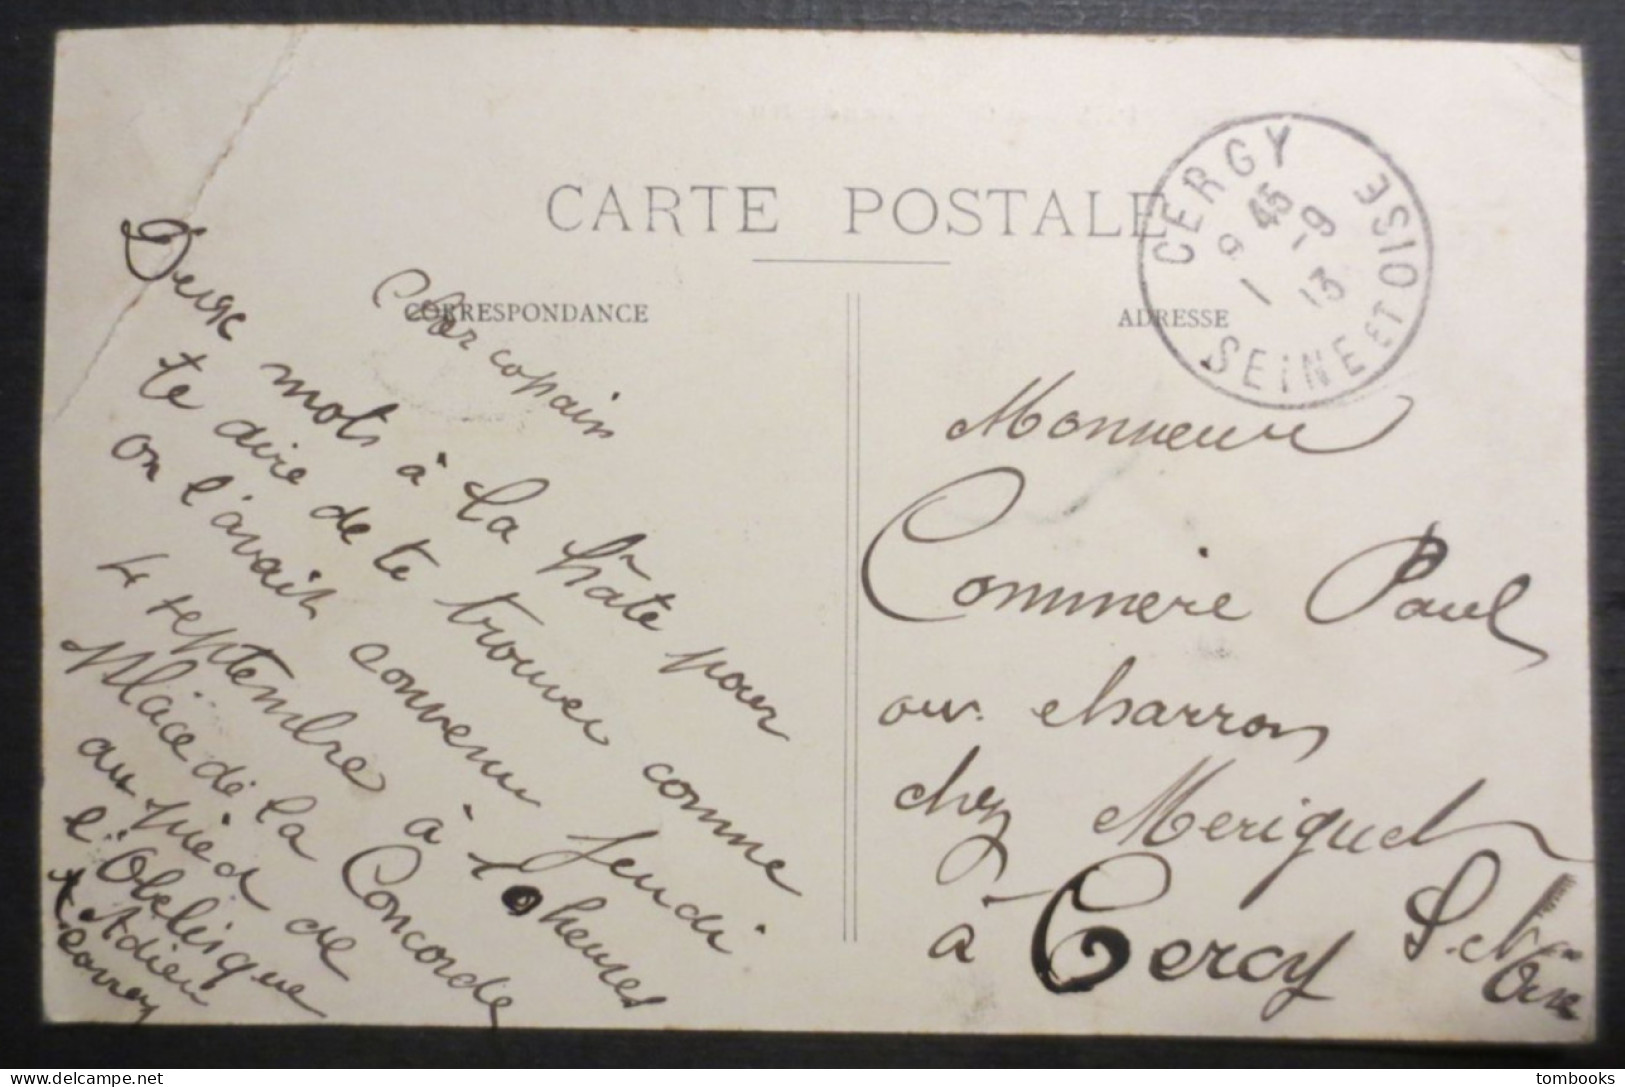 CARTE POSTALE
CORRESPONDANCE
Cher copain
Deux mots à la hâte pour
te dire de te trouver comme
on l'avait convenu Jeudi
4 septembre à 10 heures
place de la Concorde
au pied de
l'Obélisque
Adieu
ADRESSE
CERGY
SEINE ET OISE
9 45
1 - 9
13
Monsieur
Commere Paul
ouv. charron
chez Meriguet
à Cergy
S. et Oise
tombooks
delcampe.net